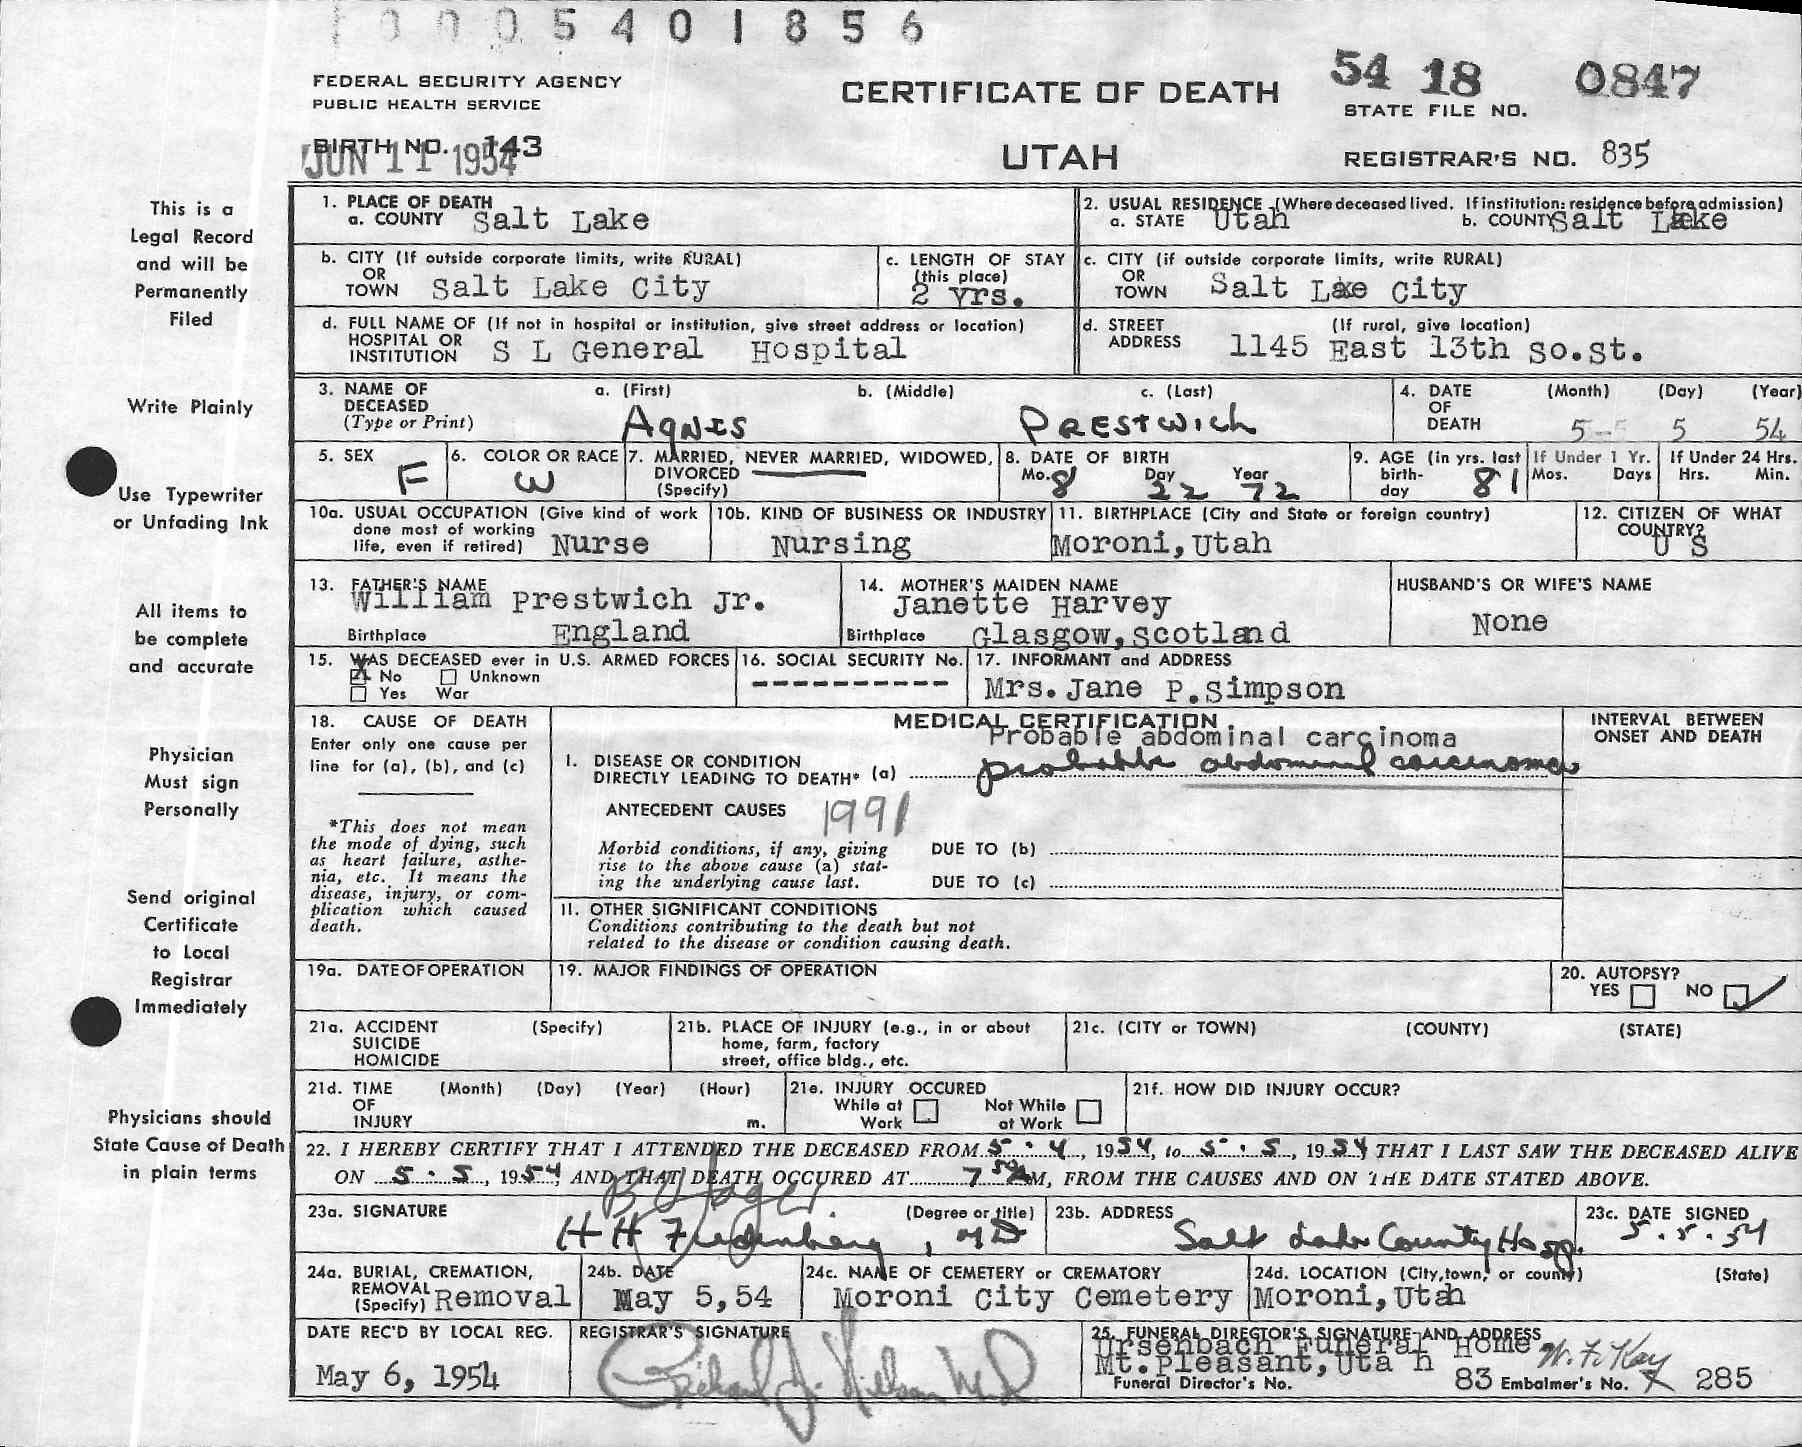 1 0 0 0 5 4 0 1 8 5 6
FEDERAL SECURITY AGENCY
PUBLIC HEALTH SERVICE
CERTIFICATE OF DEATH
54 18 0847
STATE FILE NO.
BIRTH NO. 143
JUN 11 1954
UTAH
REGISTRAR'S NO. 835
This is a
Legal Record
and will be
Permanently
Filed
Write Plainly
Use Typewriter
or Unfading Ink
All items to
be complete
and accurate
Physician
Must sign
Personally
Send original
Certificate
to Local
Registrar
Immediately
Physicians should
State Cause of Death
in plain terms
1. PLACE OF DEATH
a. COUNTY Salt Lake
2. USUAL RESIDENCE (Where deceased lived. If institution: residence before admission)
a. STATE Utah b. COUNTY Salt Lake
b. CITY (If outside corporate limits, write RURAL)
OR
TOWN Salt Lake City
c. LENGTH OF STAY
(this place)
2 yrs.
c. CITY (if outside corporate limits, write RURAL)
OR
TOWN Salt Lake City
d. FULL NAME OF (If not in hospital or institution, give street address or location)
HOSPITAL OR
INSTITUTION S L General Hospital
d. STREET (If rural, give location)
ADDRESS 1145 East 13th So.St.
3. NAME OF a. (First) b. (Middle) c. (Last)
DECEASED
(Type or Print) AGNIS PRESTWICH
4. DATE (Month) (Day) (Year)
OF
DEATH 5- 5 54
5. SEX F
6. COLOR OR RACE
W
7. MARRIED, NEVER MARRIED, WIDOWED,
DIVORCED
(Specify)
8. DATE OF BIRTH
Mo. 8 Day 22 Year 72
9. AGE (in yrs. last
birth-
day 81
If Under 1 Yr.
Mos. Days
If Under 24 Hrs.
Hrs. Min.
10a. USUAL OCCUPATION (Give kind of work
done most of working
life, even if retired) Nurse
10b. KIND OF BUSINESS OR INDUSTRY
Nursing
11. BIRTHPLACE (City and State or foreign country)
Moroni, Utah
12. CITIZEN OF WHAT
COUNTRY?
U S
13. FATHER'S NAME
William Prestwich Jr.
Birthplace England
14. MOTHER'S MAIDEN NAME
Janette Harvey
Birthplace Glasgow, Scotland
HUSBAND'S OR WIFE'S NAME
None
15. WAS DECEASED ever in U.S. ARMED FORCES
X No Unknown
Yes War
16. SOCIAL SECURITY No.
----------
17. INFORMANT and ADDRESS
Mrs. Jane P. Simpson
18. CAUSE OF DEATH
Enter only one cause per
line for (a), (b), and (c)
*This does not mean
the mode of dying, such
as heart failure, asthe-
nia, etc. It means the
disease, injury, or com-
plication which caused
death.
MEDICAL CERTIFICATION
Probable abdominal carcinoma
I. DISEASE OR CONDITION
DIRECTLY LEADING TO DEATH* (a) probable abdominal carcinoma
ANTECEDENT CAUSES 1991
Morbid conditions, if any, giving
rise to the above cause (a) stat-
ing the underlying cause last.
DUE TO (b)
DUE TO (c)
11. OTHER SIGNIFICANT CONDITIONS
Conditions contributing to the death but not
related to the disease or condition causing death.
INTERVAL BETWEEN
ONSET AND DEATH
19a. DATE OF OPERATION
19. MAJOR FINDINGS OF OPERATION
20. AUTOPSY?
YES NO ✓
21a. ACCIDENT (Specify)
SUICIDE
HOMICIDE
21b. PLACE OF INJURY (e.g., in or about
home, farm, factory
street, office bldg., etc.
21c. (CITY or TOWN) (COUNTY) (STATE)
21d. TIME (Month) (Day) (Year) (Hour)
OF
INJURY m.
21e. INJURY OCCURED
While at Not While
Work at Work
21f. HOW DID INJURY OCCUR?
22. I HEREBY CERTIFY THAT I ATTENDED THE DECEASED FROM 5 . 4, 1954, to 5 . 5, 1954 THAT I LAST SAW THE DECEASED ALIVE
ON 5 . 5, 1954, AND THAT DEATH OCCURED AT 7 50 AM, FROM THE CAUSES AND ON THE DATE STATED ABOVE.
23a. SIGNATURE (Degree or title)
H H Fredenberg, MD
23b. ADDRESS
Salt Lake County Hosp.
23c. DATE SIGNED
5.5.54
24a. BURIAL, CREMATION,
REMOVAL
(Specify) Removal
24b. DATE
May 5,54
24c. NAME OF CEMETERY or CREMATORY
Moroni City Cemetery
24d. LOCATION (City, town, or county) (State)
Moroni, Utah
DATE REC'D BY LOCAL REG.
May 6, 1954
REGISTRAR'S SIGNATURE
25. FUNERAL DIRECTOR'S SIGNATURE AND ADDRESS
Ursenbach Funeral Home
W. F. Kay
Mt. Pleasant, Utah
Funeral Director's No. 83 Embalmer's No. 285